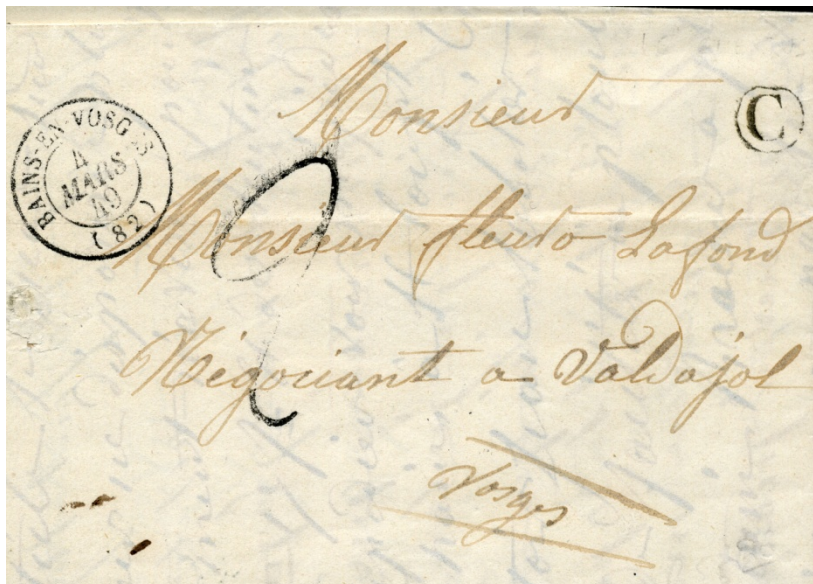 BAINS-EN-VOSGES
4
MARS
49
(82)
C
2
Monsieur
Monsieur fleurot Lafond
Négociant a Valdajol
Vosges